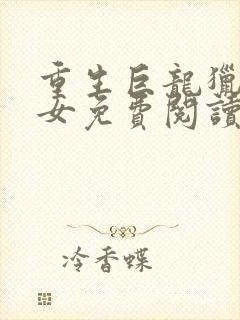 重生巨龍獵
女免費閱讀
冷香蝶